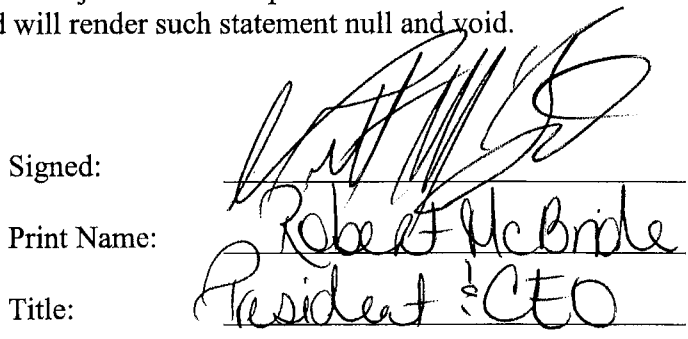 will render such statement null and void.
Signed:
Print Name: Robert McBride
Title: President & CEO